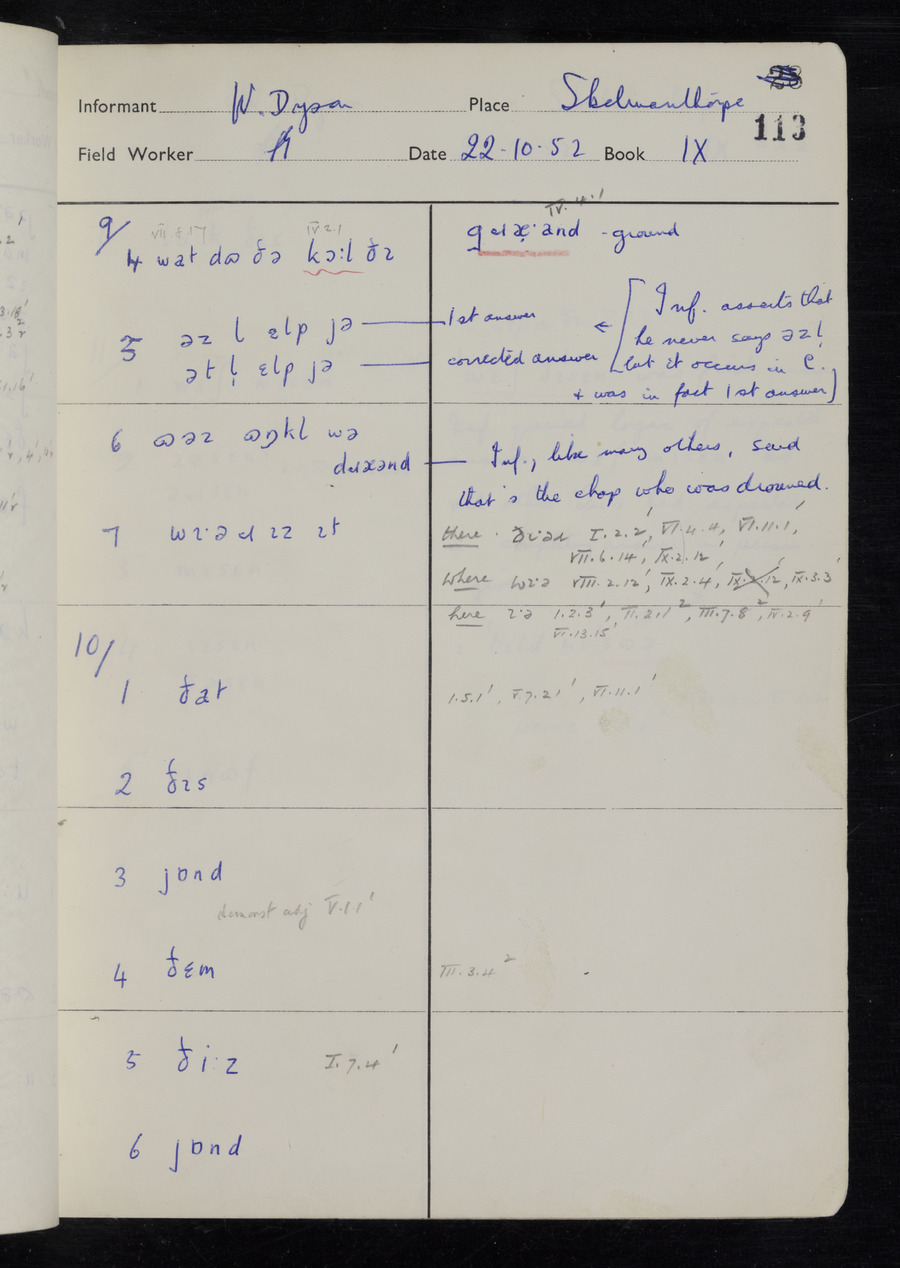 Informant W. Dyson Place Skelmanthorpe
113
Field Worker Date 22-10-52 Book IX
9/
VII.8.17 IV 2.1
4 wat dɷ ðə kɔːl ðɪ
IV.4.1
gɹæːənd - ground
5 əz l ɛlp jə
1st answer
ət l̩ ɛlp jə
corrected answer
← [ Inf. asserts that
he never says əz!
but it occurs in C.
+ was in fact 1st answer]
6 ɷəz ɷŋkl wə
dɹæənd
Inf., like many others, said
that's the chap who was drowned.
7 wɪːəɹ ɪz ɪt
there · ðɪːəɹ I.2.2', VI.4.4, VI.11.1',
VII.6.14', IX.2.12'
where wɪːə VIII.2.12', IX.2.4, IX.2.12, IX.3.3'
here ɪːə 1.2.3', II.2.1², III.7.8², IV.2.9'
VI.13.15'
10/
1 ðat
1.5.1', V.7.21', VI.11.1'
2 ðɪs
3 jɒnd
demonst adj V.1.1'
4 ðɛm
III.3.4²
5 ðiːz I.7.4'
6 jɒnd